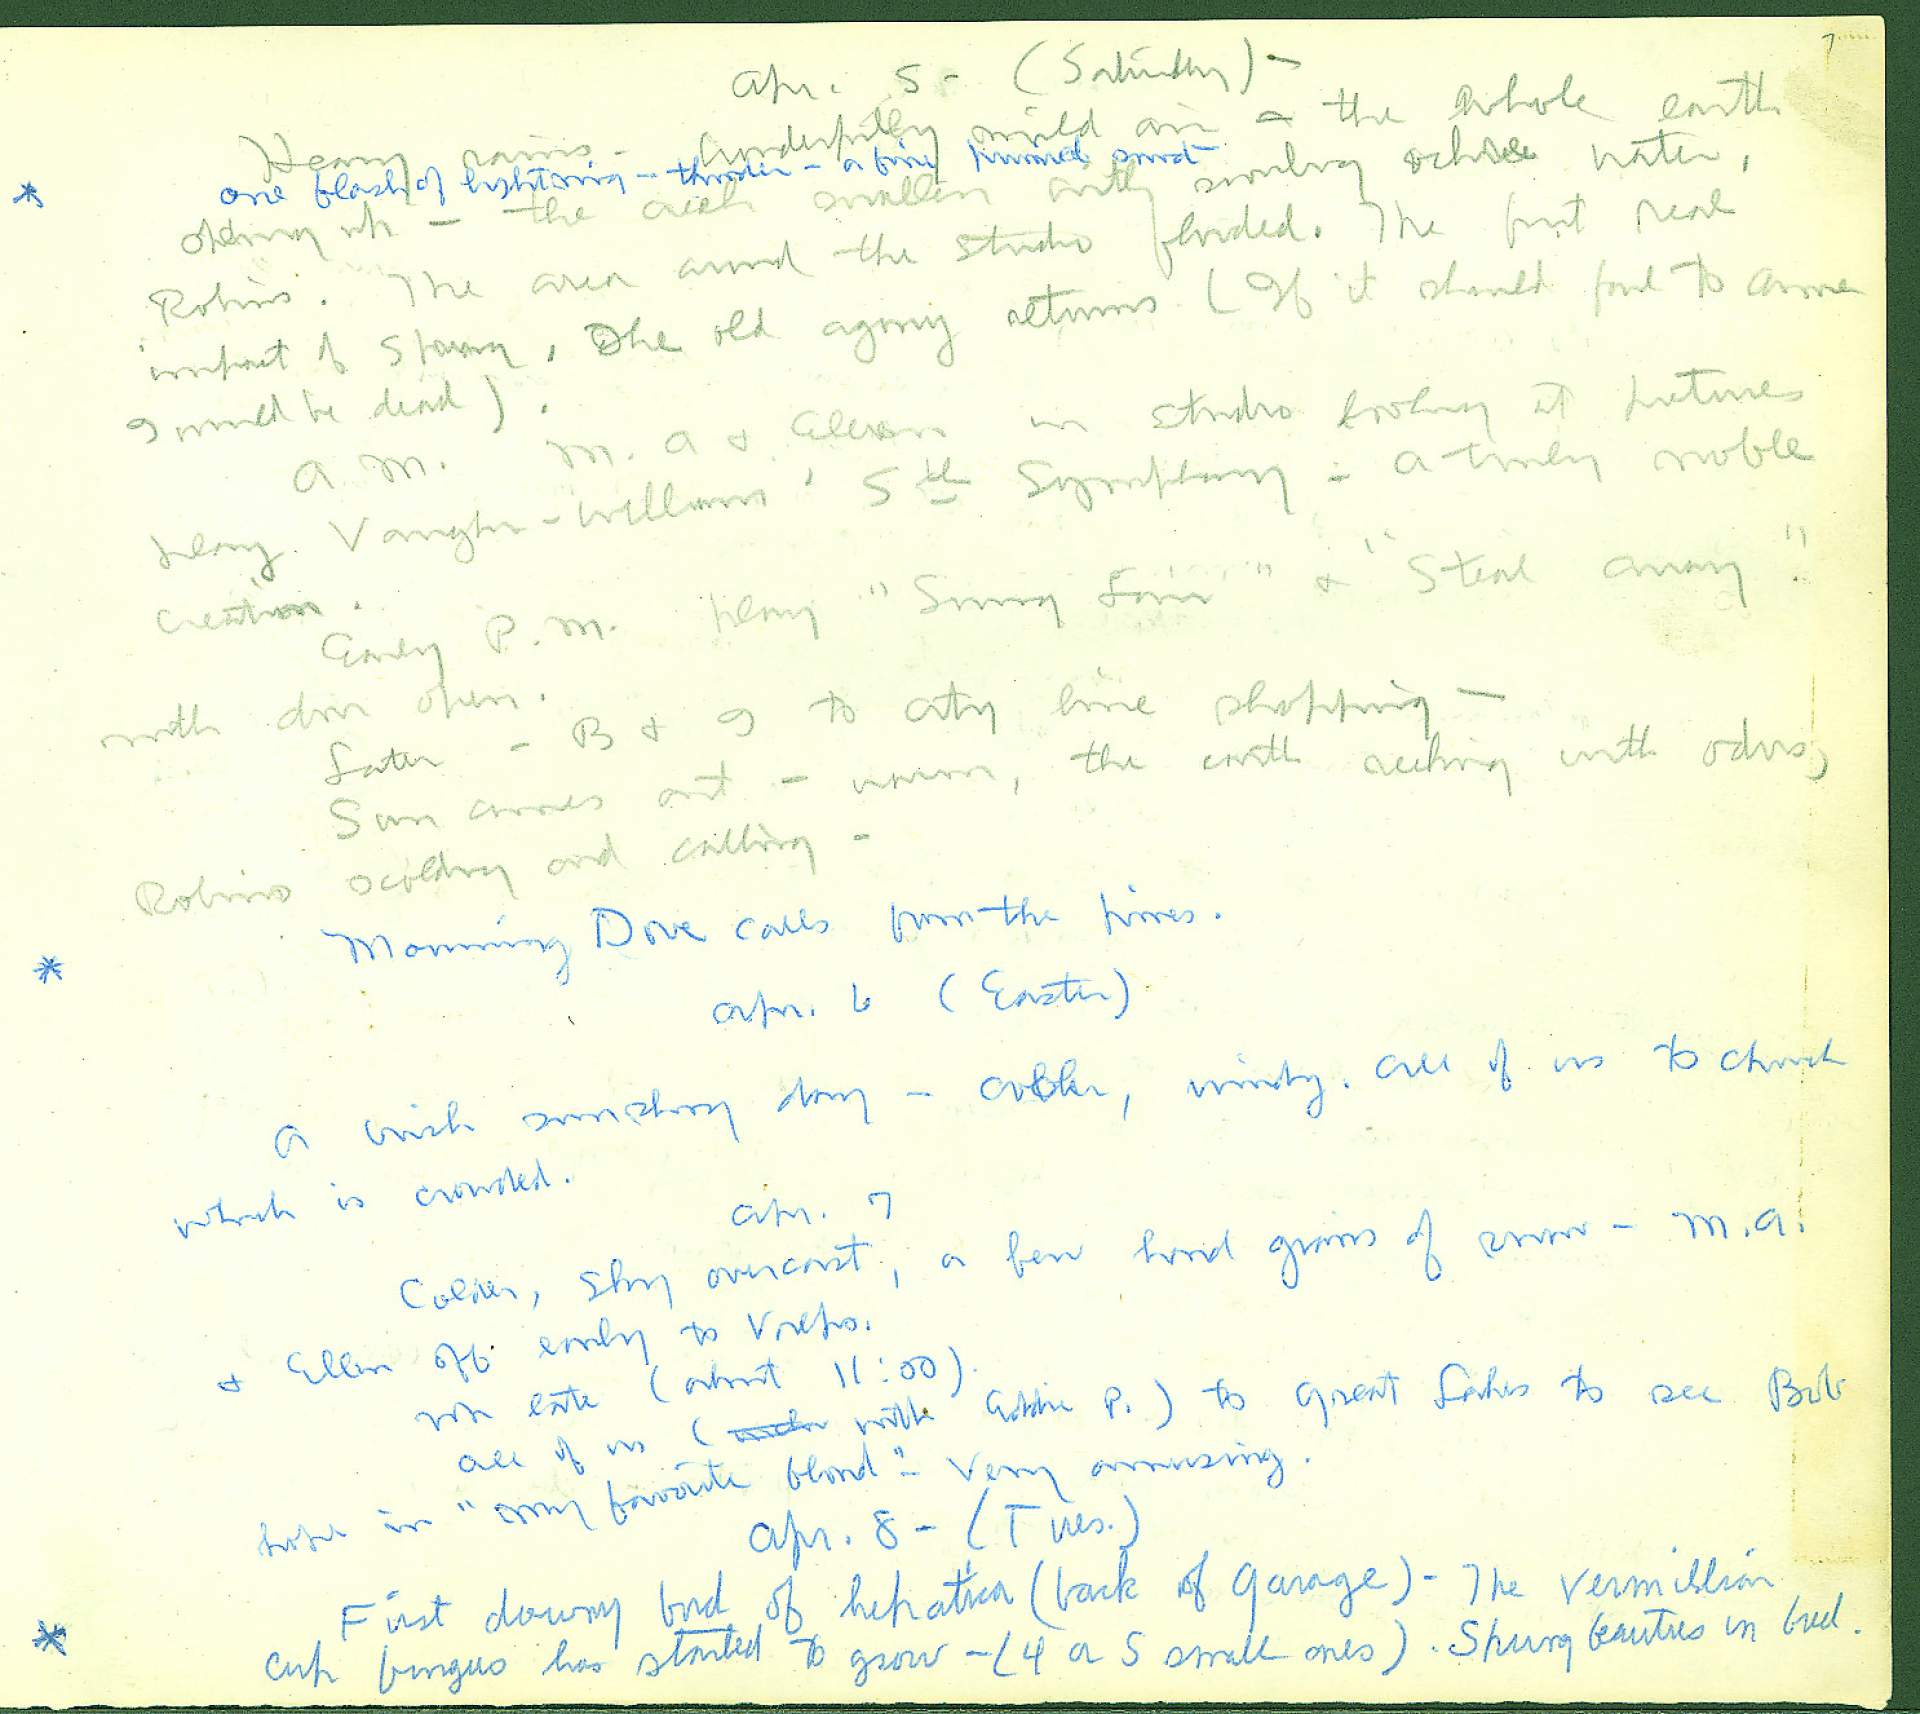 7
Apr. 5 - (Saturday) -
Heavy rains - Wonderfully mild air - the whole earth
* one flash of lightning - thunder - a fine sound
opening up - the creek swollen with swirling ochre water.
Robins. The area around the studio flooded. The first real
impact of Spring. The old agony returns (If it should fail to come
I would be dead).
A.M. M.A & Ellen in studio looking at pictures
play Vaughn-Williams' 5th Symphony - a truly noble
creation.
Early P.M. play "Fair" & "Steal Away".
with door open.
Later - B & I to city line shopping -
Sun comes out - warm, the earth reeking with odors,
Robins scolding and calling -
* Mourning Dove calls from the pines.
Apr. 6 (Easter)
A sunshiny day - cooler, windy. All of us to church
which is crowded.
Apr. 7
Colder, sky overcast, a few hard grains of snow - M.A.
& Ellen off early to Valpo.
late (about 11:00).
All of us (with P.) to Great Lakes to see Bob
hope in "my favorite blond" - Very amusing.
Apr. 8 - (Tues.)
First downy bud of hepatica (back of Garage) - The Vermillion
* cup fungus has started to grow - (4 or 5 small ones). Spring beauties in bud.